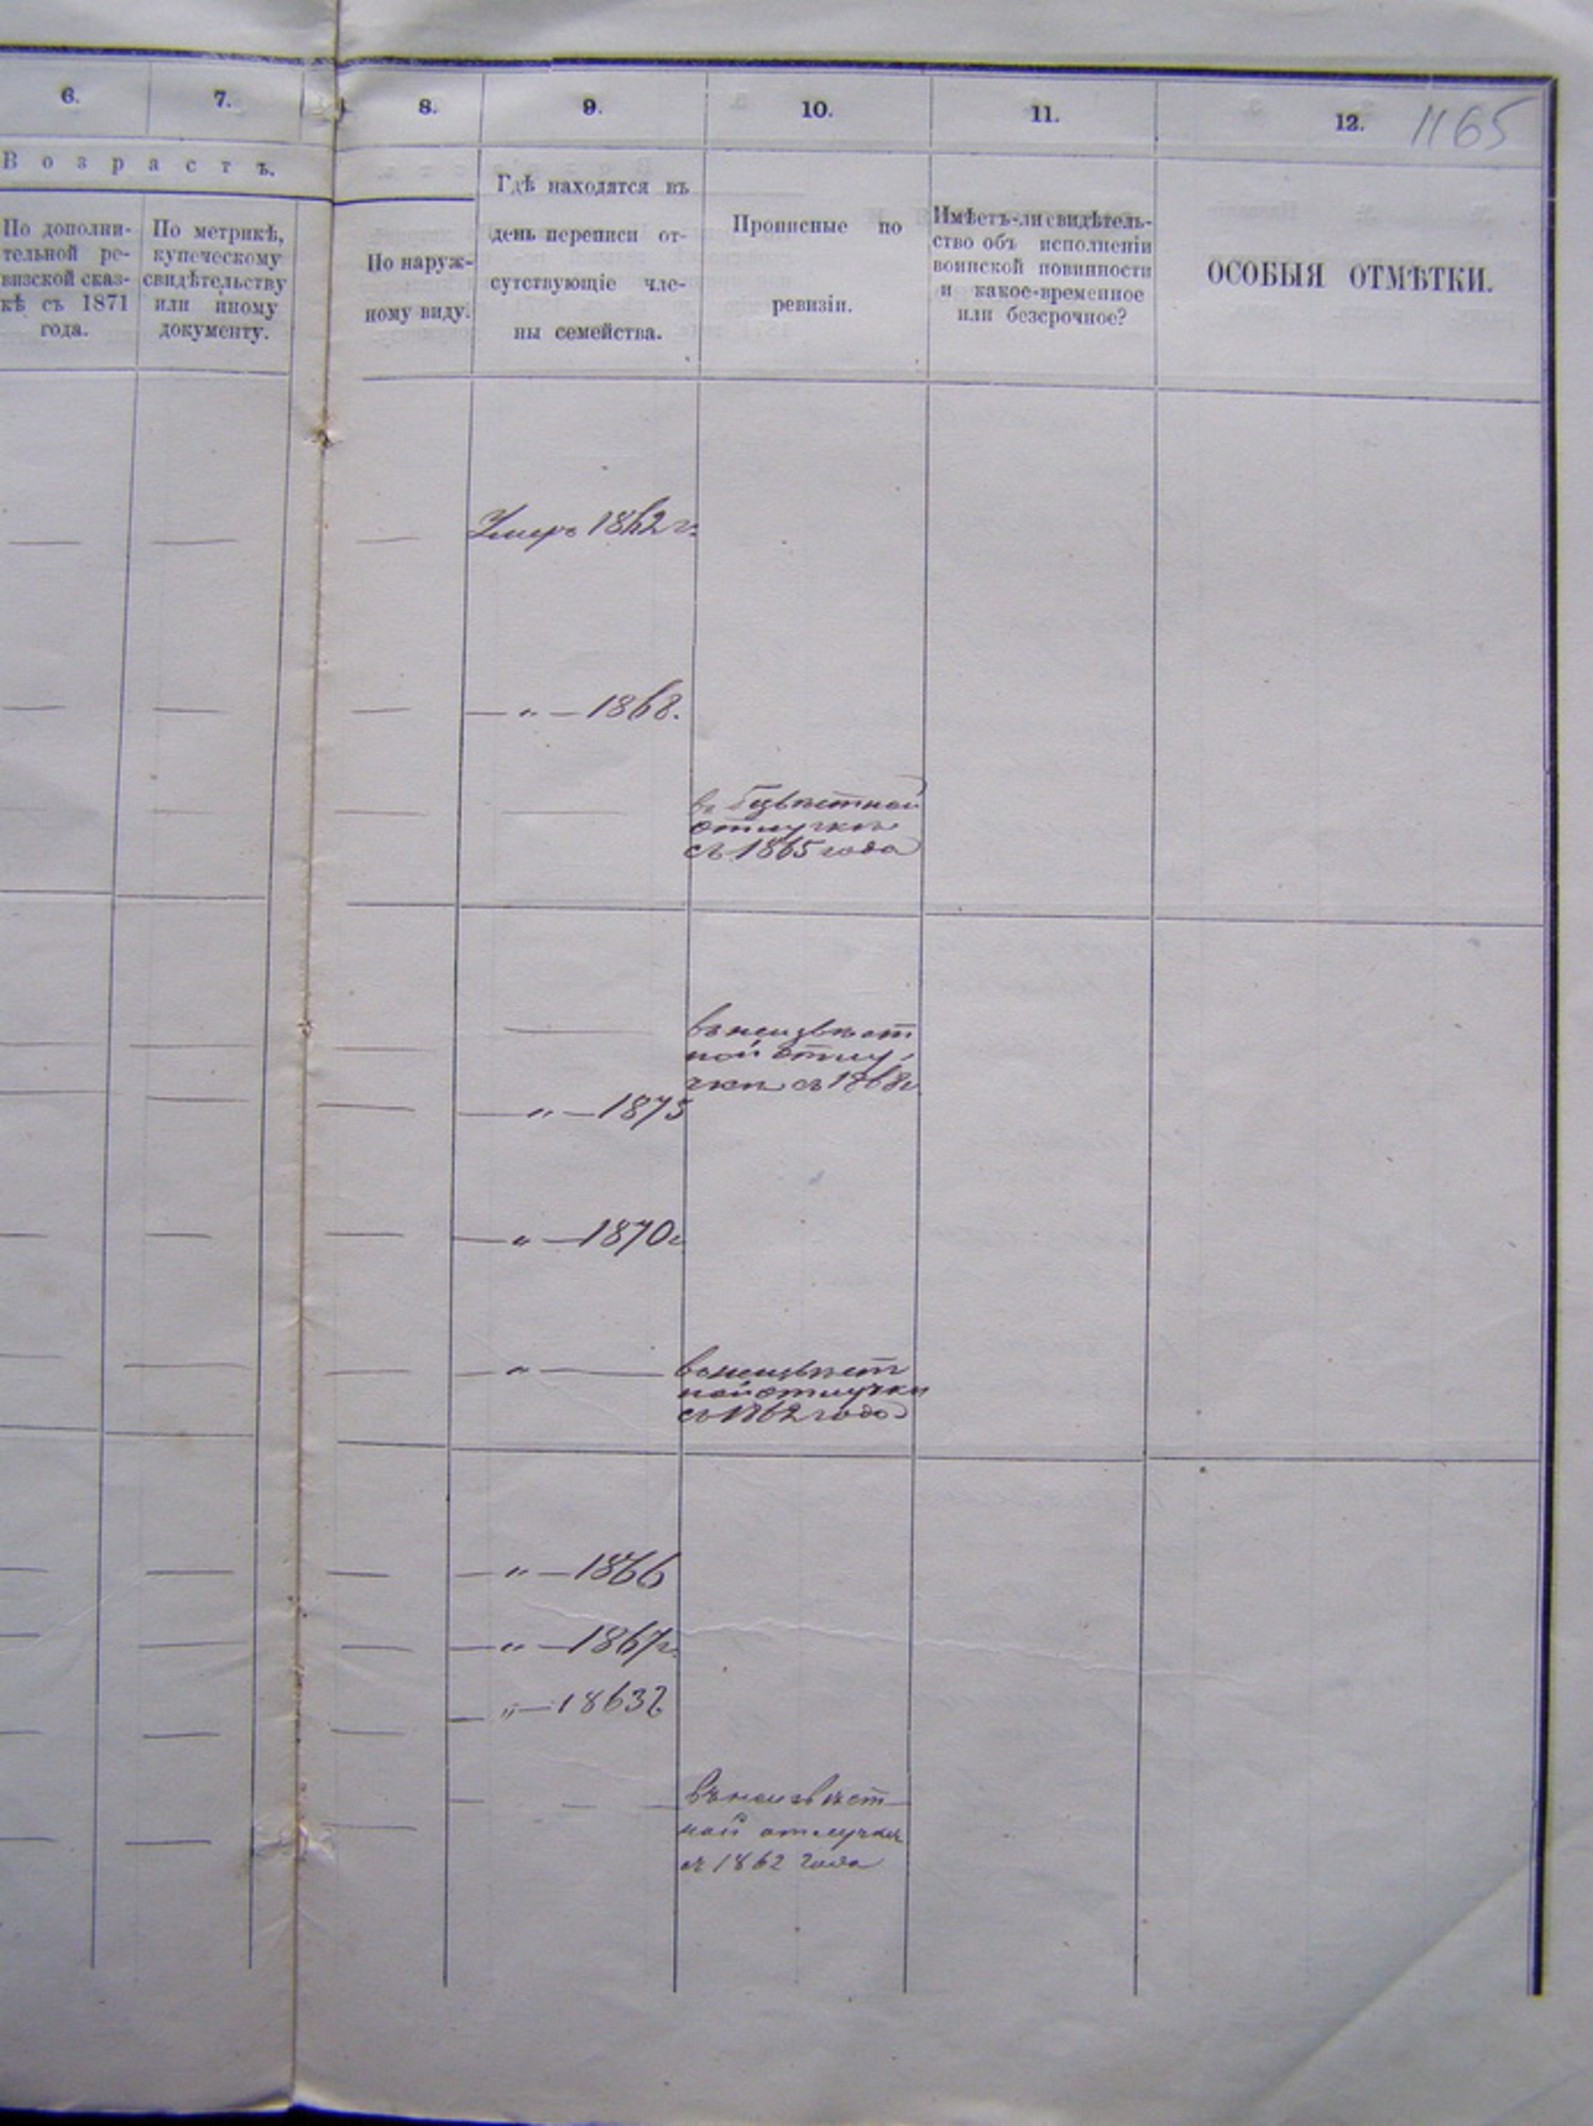 6.
7.
8.
9.
10.
11.
12.
1165
Возрастъ.
По дополни-
тельной ре-
визской сказ-
кѣ съ 1871
года.
По метрикѣ,
купеческому
свидѣтельству
или иному
документу.
По наруж-
ному виду.
Гдѣ находятся въ
день переписи от-
сутствующіе чле-
ны семейства.
Прописные по
ревизіи.
Имѣетъ-ли свидѣтель-
ство объ исполненіи
воинской повинности
и какое-временное
или безсрочное?
ОСОБЫЯ ОТМѢТКИ.
Умеръ 1862 г.
— „ — 1868.
въ безвѣстной
отлучкѣ
съ 1865 года
въ неизвѣст
ной отлу-
чкѣ съ 1868 г.
— „ — 1875
— „ — 1870 г
— „ —
въ неизвѣст
ной отлучки
съ 1862 года
— „ — 1866
— „ — 1867 г.
— „ — 1863 г
въ неизвѣст
ной отлучкѣ
съ 1862 года